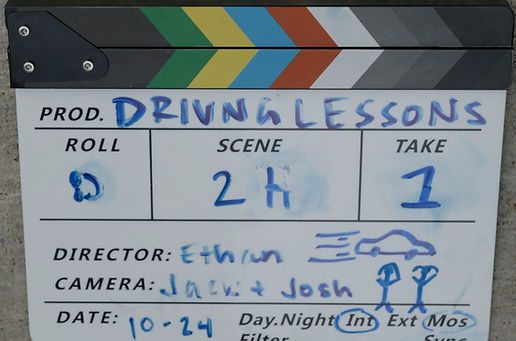 PROD. DRIVNG LESSONS
ROLL SCENE TAKE
D 2H 1
DIRECTOR: Ethan
CAMERA: Jack + Josh
DATE: 10-24 Day.Night Int Ext Mos
Filter Sync